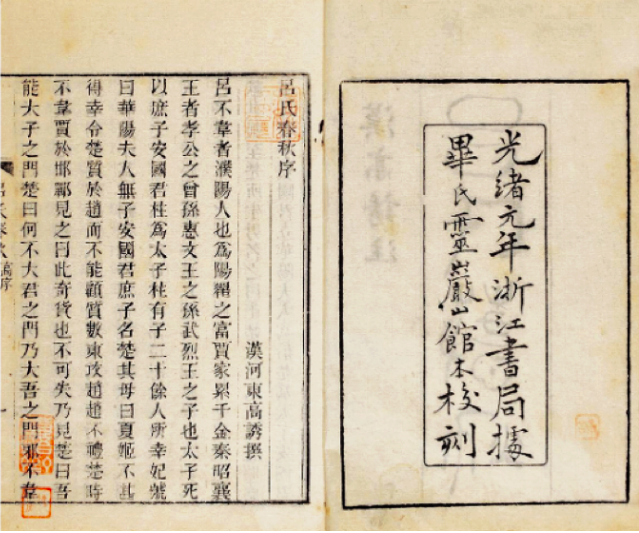 光緒元年浙江書局據
畢氏靈巖山館本校刻
呂氏春秋序
漢河東高誘撰
呂不韋者濮陽人也爲陽翟之富賈家累千金秦昭襄
王者孝公之曾孫惠文王之孫武烈王之子也太子死
以庶子安國君柱爲太子柱有子二十餘人所幸妃號
曰華陽夫人無子安國君庶子名楚其母曰夏姬不甚
得幸令楚質於趙而不能顧質數東攻趙趙不禮楚時
不韋賈於邯鄲見之曰此奇貨也不可失乃見楚曰吾
能大子之門楚曰何不大君之門乃大吾之門邪不韋